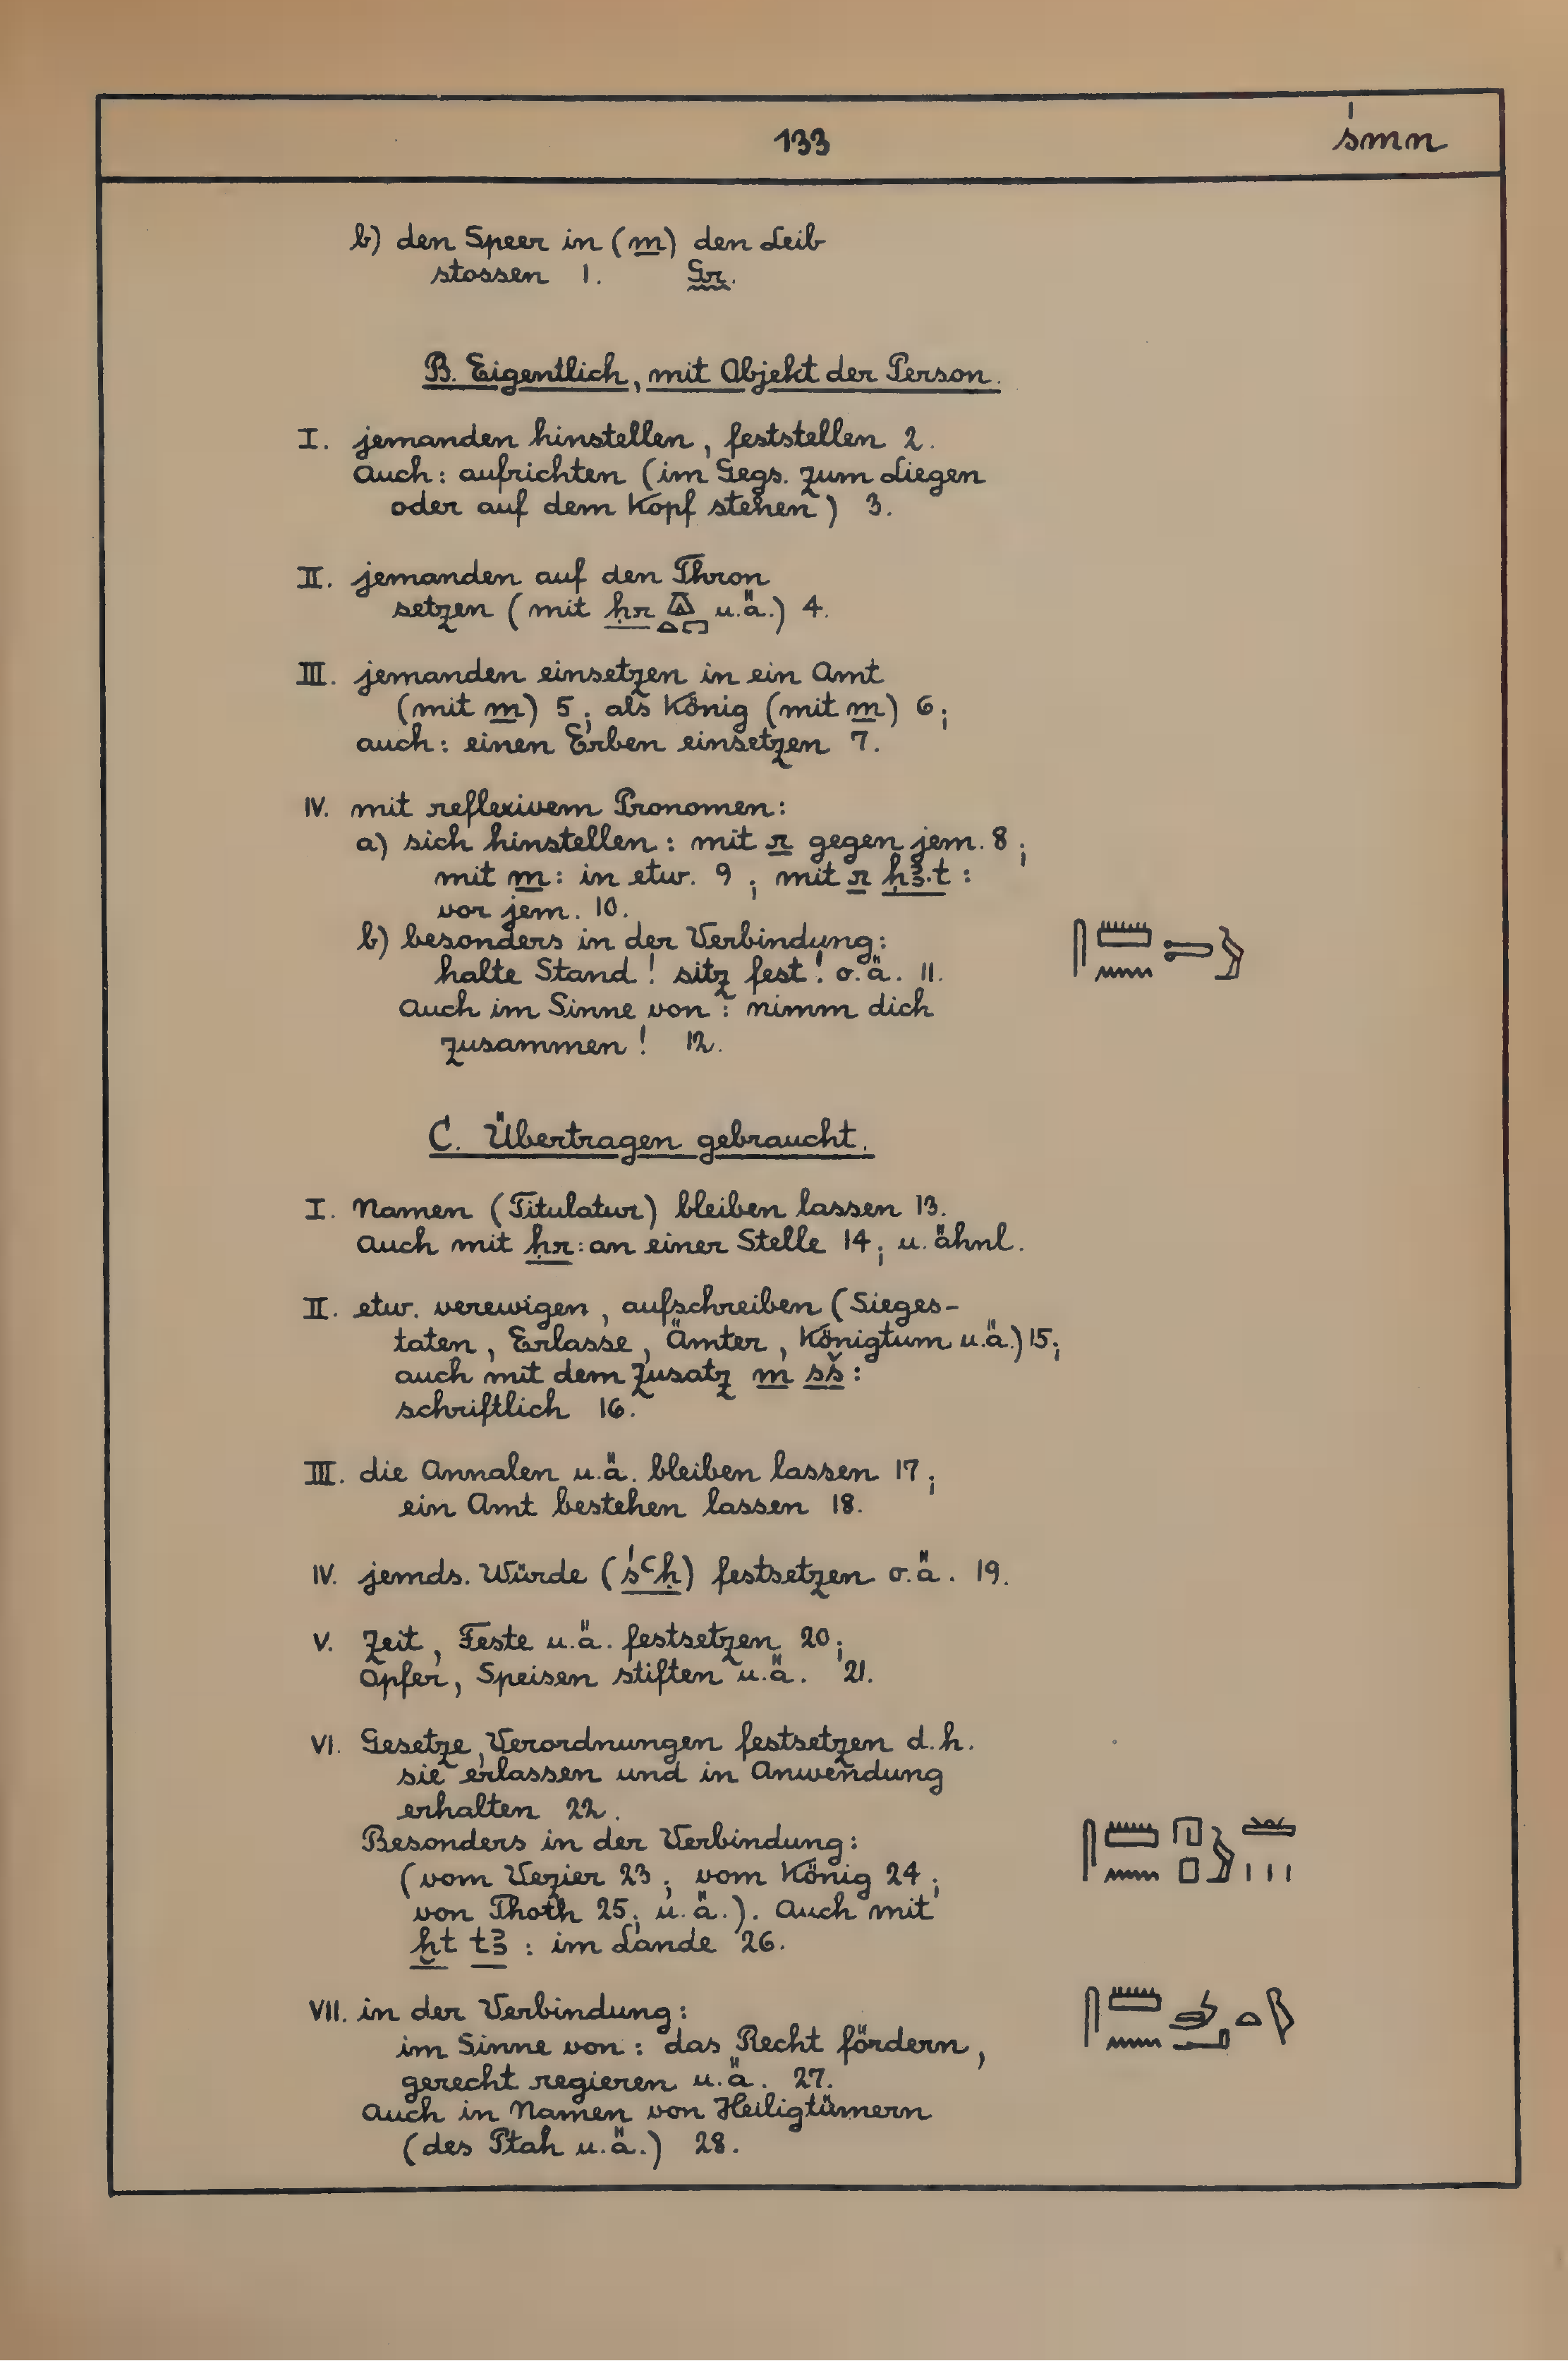 133
śmn
b) den Speer in (m) den Leib
stossen 1. Gr.
B. Eigentlich, mit Objekt der Person.
I. jemanden hinstellen, feststellen 2.
Auch: aufrichten (im Gegs. zum Liegen
oder auf dem Kopf stehen) 3.
II. jemanden auf den Thron
setzen (mit ḥr u.ä.) 4.
III. jemanden einsetzen in ein Amt
(mit m) 5; als König (mit m) 6;
auch: einen Erben einsetzen 7.
IV. mit reflexivem Pronomen:
a) sich hinstellen: mit r gegen jem. 8;
mit m: in etw. 9; mit r ḥꜣ.t:
vor jem. 10.
b) besonders in der Verbindung: 𓋴𓏠𓈖𓍿𓃀
halte Stand! sitz fest! o.ä. 11.
Auch im Sinne von: nimm dich
zusammen! 12.
C. Übertragen gebraucht.
I. Namen (Titulatur) bleiben lassen 13.
Auch mit ḥr: an einer Stelle 14; u. ähnl.
II. etw. verewigen, aufschreiben (Sieges-
taten, Erlasse, Ämter, Königtum u.ä.) 15;
auch mit dem Zusatz m sš:
schriftlich 16.
III. die Annalen u.ä. bleiben lassen 17;
ein Amt bestehen lassen 18.
IV. jemds. Würde (śꜥḥ) festsetzen o.ä. 19.
V. Zeit, Feste u.ä. festsetzen 20;
Opfer, Speisen stiften u.ä. 21.
VI. Gesetze, Verordnungen festsetzen d.h.
sie erlassen und in Anwendung
erhalten 22.
Besonders in der Verbindung: 𓋴𓏠𓈖𓉔𓊪𓃀𓏛𓏥
(vom Vezier 23; vom König 24;
von Thoth 25; u.ä.). Auch mit
ḫt tꜣ: im Lande 26.
VII. in der Verbindung: 𓋴𓏠𓈖𓌳𓂝𓏏𓆄
im Sinne von: das Recht fördern,
gerecht regieren u.ä. 27.
Auch in Namen von Heiligtümern
(des Ptah u.ä.) 28.